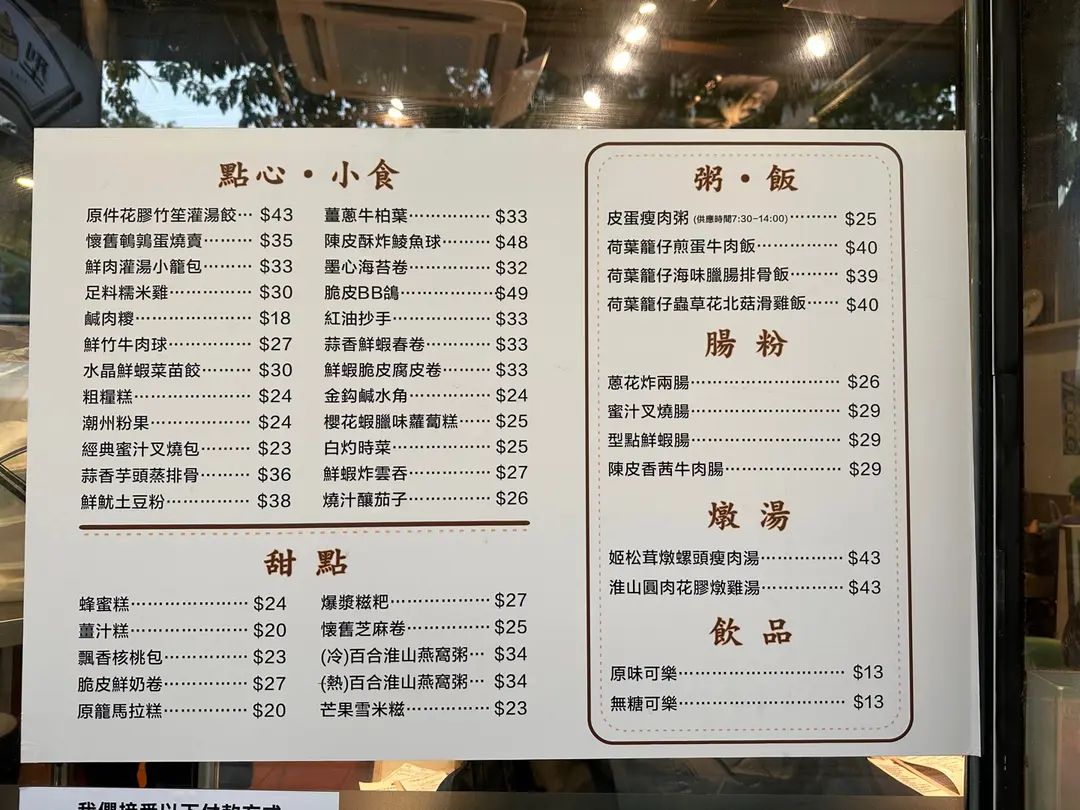 點心・小食
原件花膠竹笙灌湯餃··· $43
懷舊鵪鶉蛋燒賣········· $35
鮮肉灌湯小籠包········· $33
足料糯米雞··············· $30
鹹肉糭····················· $18
鮮竹牛肉球··············· $27
水晶鮮蝦菜苗餃········· $30
粗糧糕····················· $24
潮州粉果·················· $24
經典蜜汁叉燒包········· $23
蒜香芋頭蒸排骨········· $36
鮮魷土豆粉··············· $38
薑蔥牛柏葉··············· $33
陳皮酥炸鯪魚球········· $48
墨心海苔卷··············· $32
脆皮BB鴿················· $49
紅油抄手·················· $33
蒜香鮮蝦春卷············ $33
鮮蝦脆皮腐皮卷········· $33
金鈎鹹水角··············· $24
櫻花蝦臘味蘿蔔糕······ $25
白灼時菜·················· $25
鮮蝦炸雲吞··············· $27
燒汁釀茄子··············· $26
甜點
蜂蜜糕····················· $24
薑汁糕····················· $20
飄香核桃包··············· $23
脆皮鮮奶卷··············· $27
原籠馬拉糕··············· $20
爆漿糍粑·················· $27
懷舊芝麻卷··············· $25
(冷)百合淮山燕窩粥··· $34
(熱)百合淮山燕窩粥··· $34
芒果雪米糍··············· $23
粥・飯
皮蛋瘦肉粥 (供應時間7:30-14:00)········· $25
荷葉籠仔煎蛋牛肉飯··············· $40
荷葉籠仔海味臘腸排骨飯········· $39
荷葉籠仔蟲草花北菇滑雞飯······ $40
腸粉
蔥花炸兩腸··························· $26
蜜汁叉燒腸··························· $29
型點鮮蝦腸··························· $29
陳皮香茜牛肉腸····················· $29
燉湯
姬松茸燉螺頭瘦肉湯··············· $43
淮山圓肉花膠燉雞湯··············· $43
飲品
原味可樂······························ $13
無糖可樂······························ $13
我們接受以下付款方式